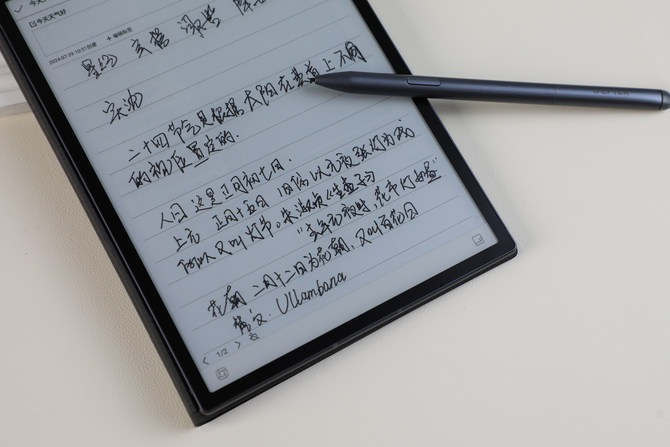 今天天气好
+ 编辑标签
2024-07-29 10:51创建
星约 文学
二十四节气是根据太阳在黄道上不同
的视位置定的.
人日 这是正月初七日.
上元 正月十五日 旧俗以元夜张灯为戏
所以又叫灯节。朱淑贞《生查子》
"去年元夜时, 花市灯如昼"
花朝 二月十二日为花朝, 又叫百花日
梵文. Ullambana
< 1/2 >